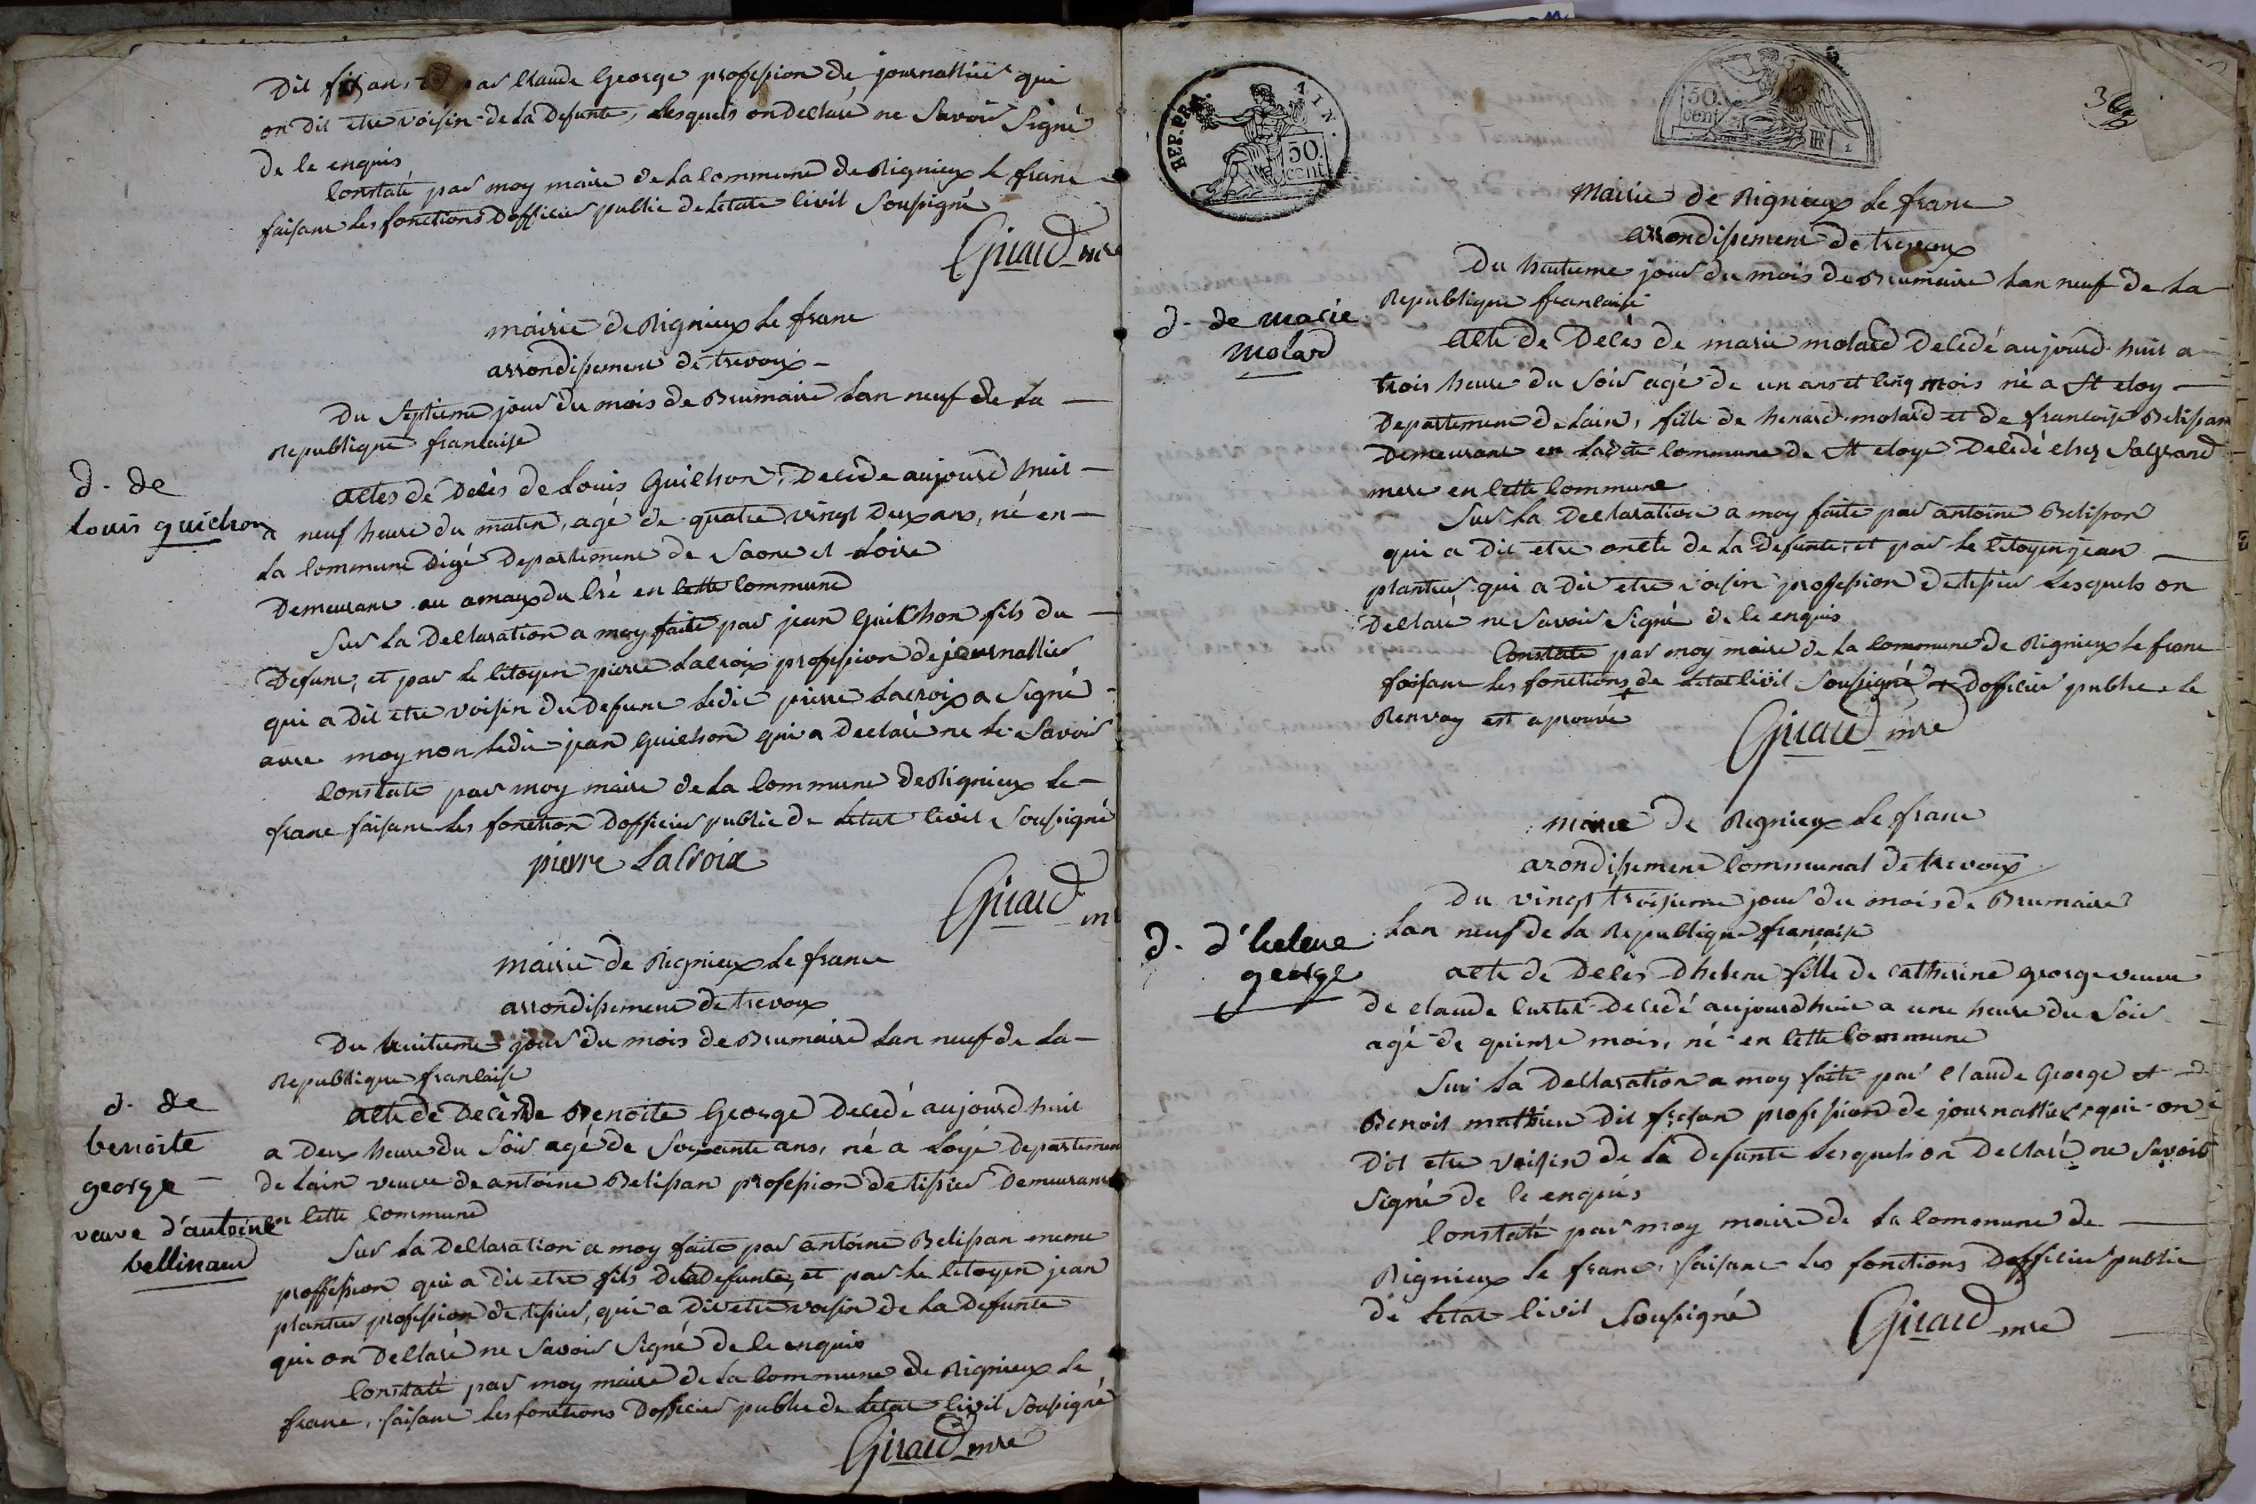 Dit par Claude George profession de journallier qui
on Dit etre voisin de La Defunte, Lesquels on Declaré ne Savoir Signé
de le enquis
Constaté par moy maire de La commune de Rignieux Le franc
faisant Les fonctions Dofficier public de Letat Civil Soussigné
Giraud mre
mairie de Rignieux Le franc
arrondissement de trevoux
Du Septieme jour du mois de Brumaire Lan neuf de La
Republique francaise
d. de
Louis guichon
actes de Decès de Louis Guichon, Decede aujourd huit
a neuf heure du maten, agé de quatre vingt Deux ans, né en
La Commune Digé Departement de Saone et Loire
Demeurant au amaux du Cré en Cette Commune
Sur La Declaration a moy faite par jean Guichon fils du
Defunt, et par Le Citoyen pierre Lacroix profession de journallier
qui a Dit etre voisin du Defunt Ledit pierre Lacroix a Signé
avec moy non Ledit jean guichon qui a Declaré ne Le Savoir
Constate par moy maire de La Commune de Rignieux Le
franc faisant Les fonction Dofficier public de Letat Civil Soussigné
pierre LaCroix
Giraud m
mairie de Rignieux Le franc
arrondissement de trevoux
Du huitieme jour du mois de Brumaire Lan neuf de La
Republique francaise
d. de
benoite
george
veuve d'antoine
bellinand
acte de Decès de Benoite George Decedé aujourd huit
a Deux heure du Soir agé de Soixante ans, né a Loyé Departement
de Lain veuve de antoine Belissan profession de tissier Demeurant
en Cette Commune
Sur La Declaration a moy faite par antoine Belissan meme
proffession qui a dit etre fils De La Defunte, et par Le Citoyen jean
plantier profession de tissier, qui a Dit etre voisin de La Defunte
qui on Declaré ne Savoir Signé de le enquis
Constaté par moy maire de La Commune de Rignieux Le
franc, faisant Les fonctions Dofficier public de Letat Civil Soussigné
Giraud mre
REP. FRA. 7 IN.
50.
cent
50.
cent
RF
3
Mairie de Rignieux Le franc
arrondissement de trevoux
Du huitieme jour du mois de Brumaire Lan neuf de La
Republique francaise
d. de marie
molard
Acte de Decès de marie molard Decedé aujourd huit a
trois heure du Soir agé de un ans et Cinq mois né a St eloy
Departement de Lain, fille de molard et de francoise Belissan
Demeurant en Ladite Commune de St eloye Decedé chez Sa grand
mere en Cette Commune
Sur La Declaration a moy faite par antoine Belisson
qui a Dit etre oncle de La Defunte, et par Le Citoyen jean
plantier qui a Dit etre voisin profession de tissier Lesquels on
Declaré ne Savoir Signé de le enquis
Constaté par moy maire de La Commune de Rignieux Le franc
faisant Les fonctions + de Letat Civil Soussigné + Dofficier public Le
Renvoy est aprouvé
Giraud mre
mairie de Rignieux Le franc
arondissement Communal de trevoux
Du vingt troisieme jour du mois de Brumaire
Lan neuf de La Republique française
d. d'helene
george
acte de Decès Dhelene fille de Catherine george veuve
de Claude Decedé aujourdhuit a une heure du Soir
agé de quinse mois, né en Cette Commune
Sur La Declaration a moy faite par Claude George et
Benoit mathieu Dit profession de journallier, qui on
Dit etre voisin de La Defunte Lesquels on Declaré ne Savoir
Signé de le enquis
Constaté par moy maire de La Commune de
Rignieux Le franc, faisant Les fonctions Dofficier public
de Letat Civil Soussigné
Giraud mre